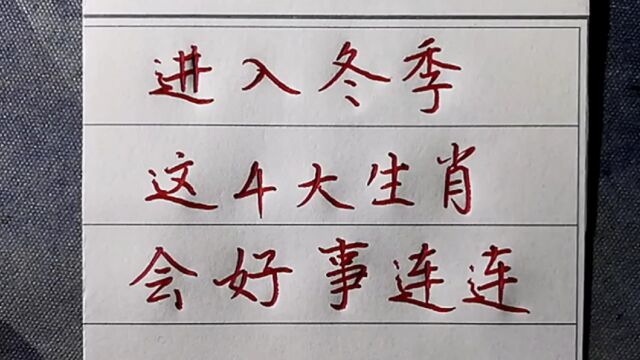 进入冬季
这4大生肖
会好事连连